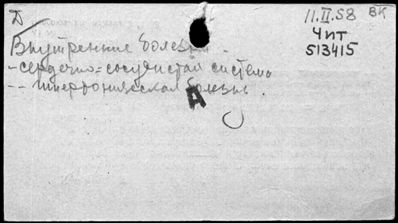 Д
11.II.58 ВК
Чит
513415
Внутренние болезни.
- сердечно-сосудистая система
-- гипертоническая болезнь.
А